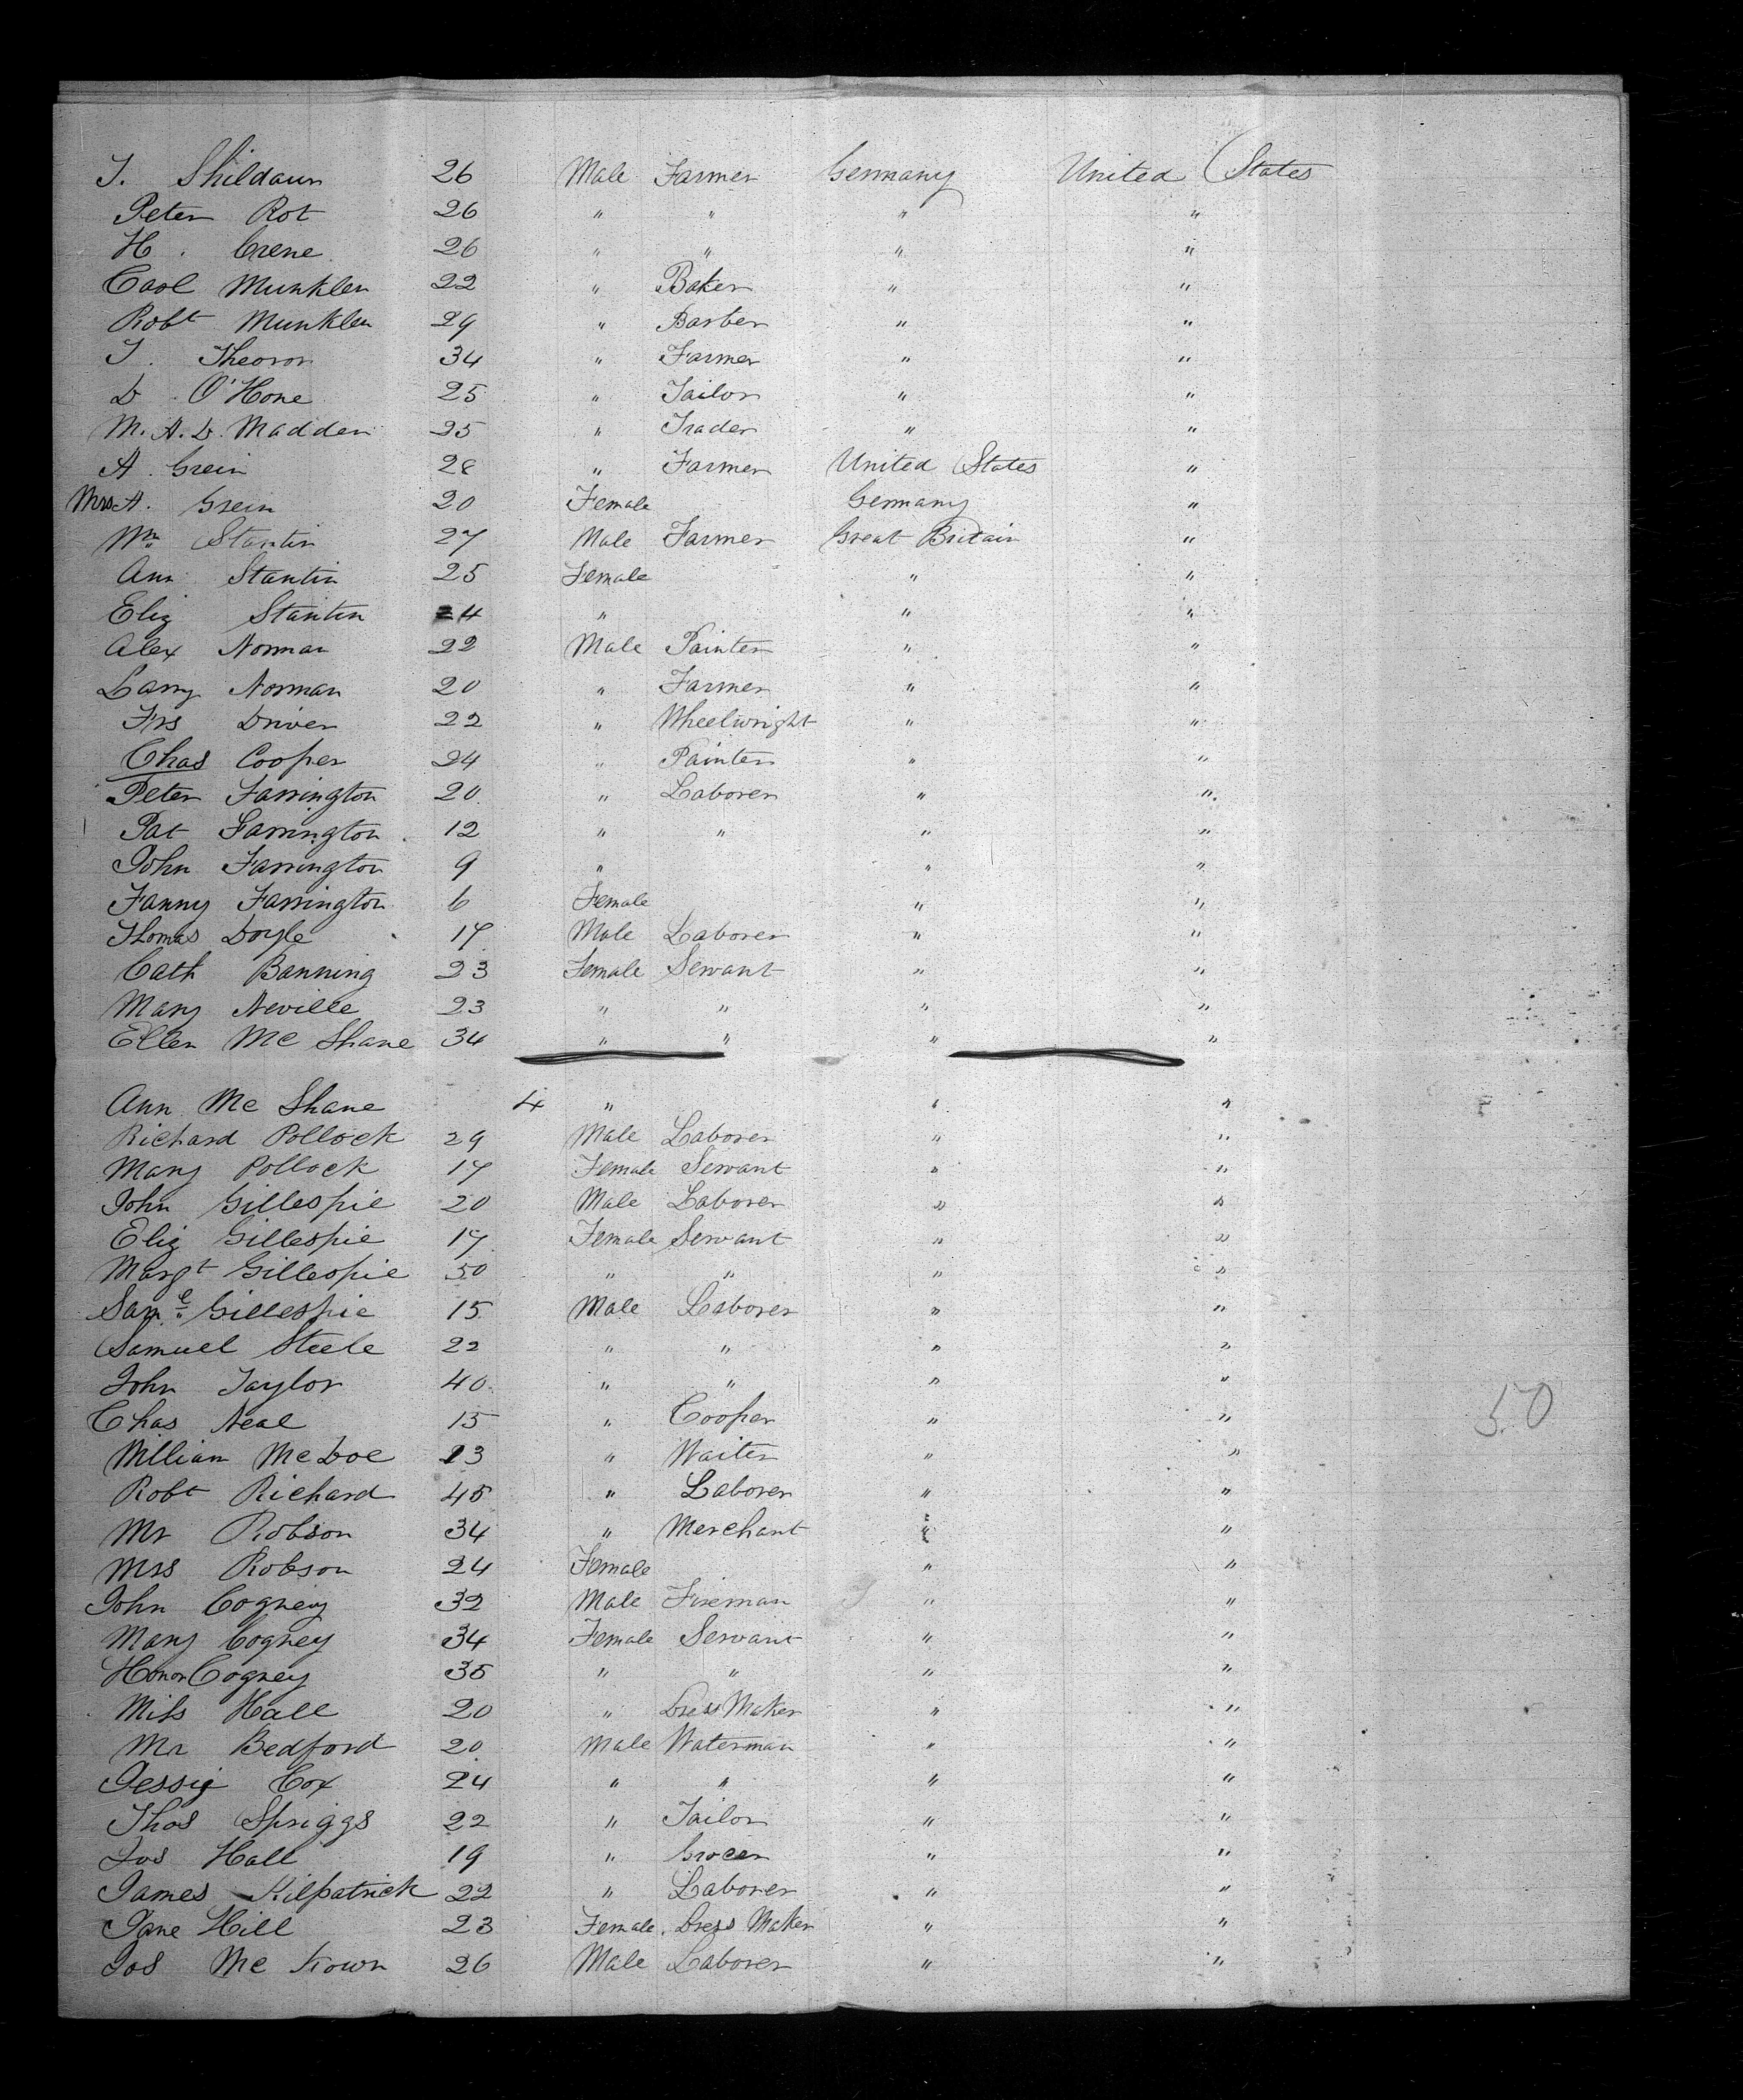 J. Shildaun 26 Male Farmer Germany United States
Peter Rot 26 " " " "
H. Crene 26 " " " "
Carl Munkler 22 " Baker " "
Robt Munkler 29 " Barber " "
J. Theoror 34 " Farmer " "
D. O'Hone 25 " Tailor " "
M. A. D. Madden 25 " Trader " "
A. Grein 28 " Farmer United States "
Mrs A. Grein 20 Female Germany "
Wm Stantin 27 Male Farmer Great Britain "
Ann Stantin 25 Female " "
Eliz Stantin 24 " " "
Alex Norman 22 Male Painter " "
Larry Norman 20 " Farmer " "
Frs Driver 22 " Wheelwright " "
Chas Cooper 24 " Painter " "
Peter Farrington 20 " Laborer " "
Pat Farrington 12 " " " "
John Farrington 9 " " "
Fanny Farrington 6 Female " "
Thomas Doyle 17 Male Laborer " "
Cath Banning 23 Female Servant " "
Mary Neville 23 " " " "
Ellen Mc Shane 34 " " " "
Ann Mc Shane 4 " " "
Richard Pollock 29 Male Laborer " "
Mary Pollock 17 Female Servant " "
John Gillespie 20 Male Laborer " "
Eliz Gillespie 17 Female Servant " "
Margt Gillespie 50 " " " "
Saml Gillespie 15 Male Laborer " "
Samuel Steele 22 " " " "
John Taylor 40 " " " "
Chas Neal 15 " Cooper " "
William McDoe 23 " Waiter " "
Robt Richard 45 " Laborer " "
Mr Robson 34 " Merchant " "
Mrs Robson 24 Female " "
John Cogney 32 Male Fireman " "
Mary Cogney 34 Female Servant " "
Honor Cogney 35 " " " "
Miss Hall 20 " Dress Maker " "
Mr Bedford 20 Male Waterman " "
Jessie Cox 24 " " " "
Thos Spriggs 22 " Tailor " "
Jos Hall 19 " Grocer " "
James Kilpatrick 22 " Laborer " "
Jane Hill 23 Female Dress Maker " "
Jos Mc Kown 26 Male Laborer " "
50